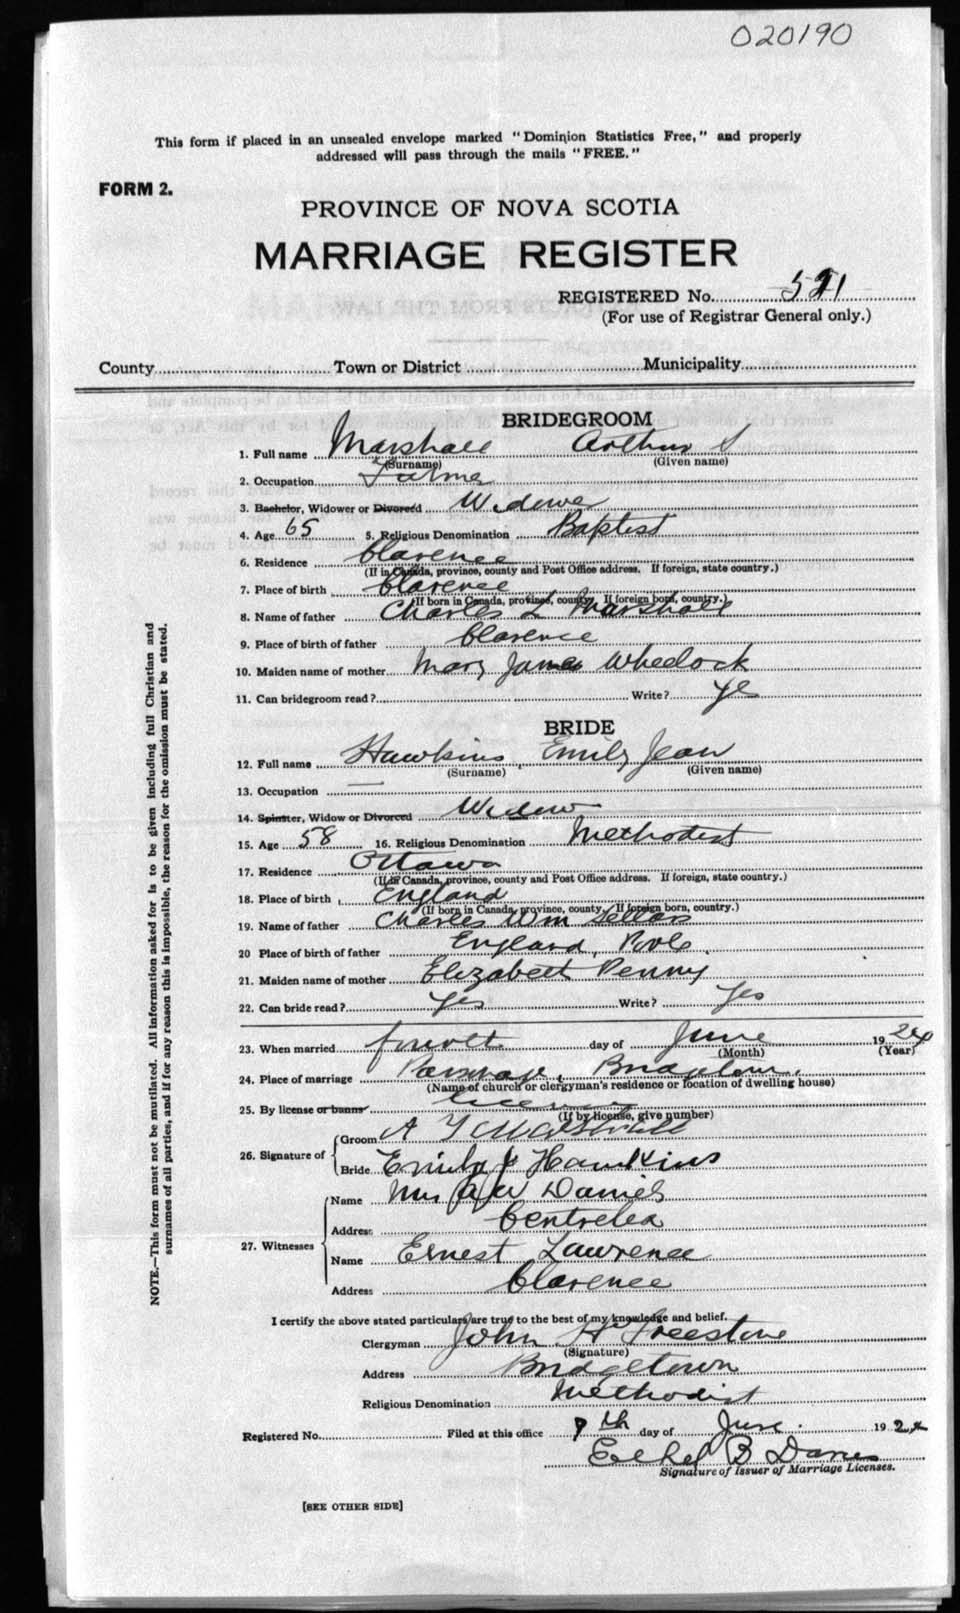 020190
This form if placed in an unsealed envelope marked "Dominion Statistics Free," and properly
addressed will pass through the mails "FREE."
FORM 2.
PROVINCE OF NOVA SCOTIA
MARRIAGE REGISTER
REGISTERED No. 591
(For use of Registrar General only.)
County Town or District Municipality
BRIDEGROOM
1. Full name Marshall Arthur S
(Surname) (Given name)
2. Occupation Farmer
3. Bachelor, Widower or Divorced Widower
4. Age 65 5. Religious Denomination Baptist
6. Residence Clarence
(If in Canada, province, county and Post Office address. If foreign, state country.)
7. Place of birth Clarence
(If born in Canada, province, county. If foreign born, country.)
8. Name of father Charles L Marshall
9. Place of birth of father Clarence
10. Maiden name of mother Mary James Wheelock
11. Can bridegroom read? Write? ye
BRIDE
12. Full name Hawkins Emily Jean
(Surname) (Given name)
13. Occupation —
14. Spinster, Widow or Divorced Widow
15. Age 58 16. Religious Denomination Methodist
17. Residence Ottawa
(If in Canada, province, county and Post Office address. If foreign, state country.)
18. Place of birth England
(If born in Canada, province, county. If foreign born, country.)
19. Name of father Charles Wm Sellars
20 Place of birth of father England, Poole
21. Maiden name of mother Elizabeth Penny
22. Can bride read? Yes Write? Yes
23. When married fourth day of June 1924
(Month) (Year)
24. Place of marriage Parsonage, Bridgetown.
(Name of church or clergyman's residence or location of dwelling house)
25. By license or banns license
(If by license, give number)
26. Signature of Groom A Marshall
Bride Emily J Hawkins
27. Witnesses Name Mrs A W Daniels
Address Centrelea
Name Ernest Lawrence
Address Clarence
I certify the above stated particulars are true to the best of my knowledge and belief.
Clergyman John H Freestone
(Signature)
Address Bridgetown
Religious Denomination Methodist
Registered No. Filed at this office 9th day of June. 1924
Ethel B Danes
Signature of Issuer of Marriage Licenses.
[SEE OTHER SIDE]
NOTE.—This form must not be mutilated. All information asked for is to be given including full Christian and
surnames of all parties, and if for any reason this is impossible, the reason for the omission must be stated.